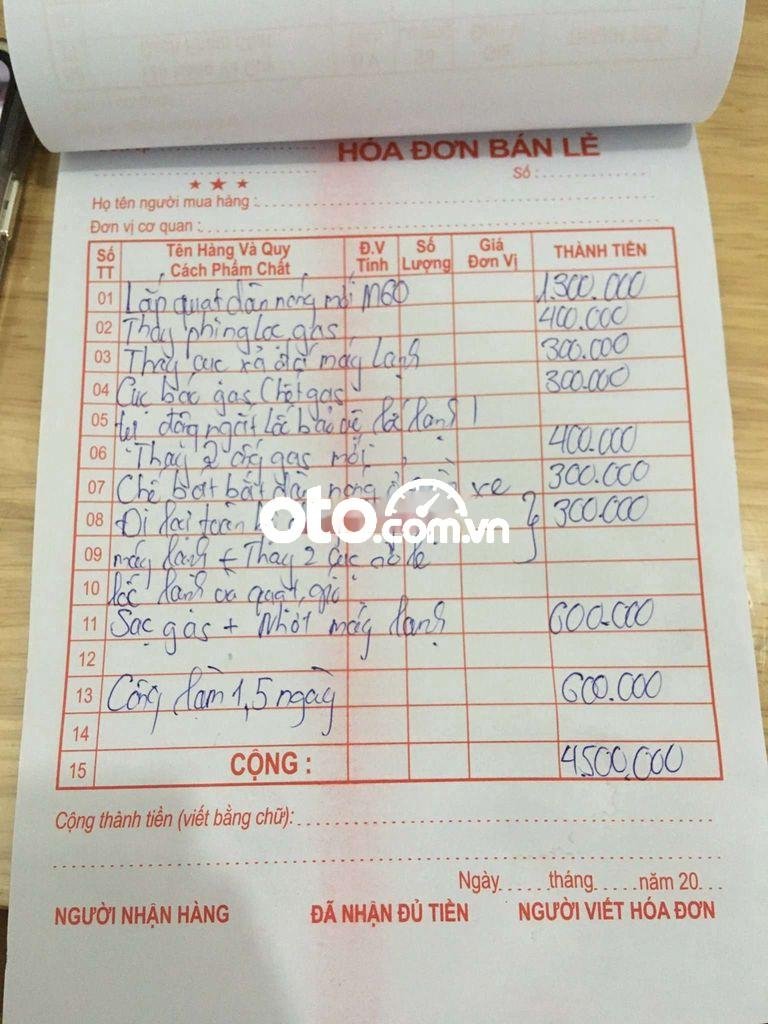 HÓA ĐƠN BÁN LẺ
★ ★ ★ Số :
Họ tên người mua hàng :
Đơn vị cơ quan :
Số TT Tên Hàng Và Quy Cách Phẩm Chất Đ.V Tính Số Lượng Giá Đơn Vị THÀNH TIỀN
01 Lắp quạt dàn nóng mới M60 1.300.000
02 Thay phin lọc gas 400.000
03 Thay cục xả đá máy lạnh 300.000
04 Cục báo gas, hết gas 300.000
05 tự động ngắt lốc bảo vệ lốc lạnh
06 Thay 2 ống gas mới 400.000
07 Chế bát bắt dàn nóng xe 300.000
08 Đi lại toàn 300.000
oto.com.vn
09 máy lạnh + Thay 2 cục rơ le
10 lốc lạnh và quạt gió
11 Sạc gas + Nhớt máy lạnh 600.000
12
13 Công làm 1,5 ngày 600.000
14
15 CỘNG : 4500.000
Cộng thành tiền (viết bằng chữ):
Ngày tháng năm 20
NGƯỜI NHẬN HÀNG ĐÃ NHẬN ĐỦ TIỀN NGƯỜI VIẾT HÓA ĐƠN